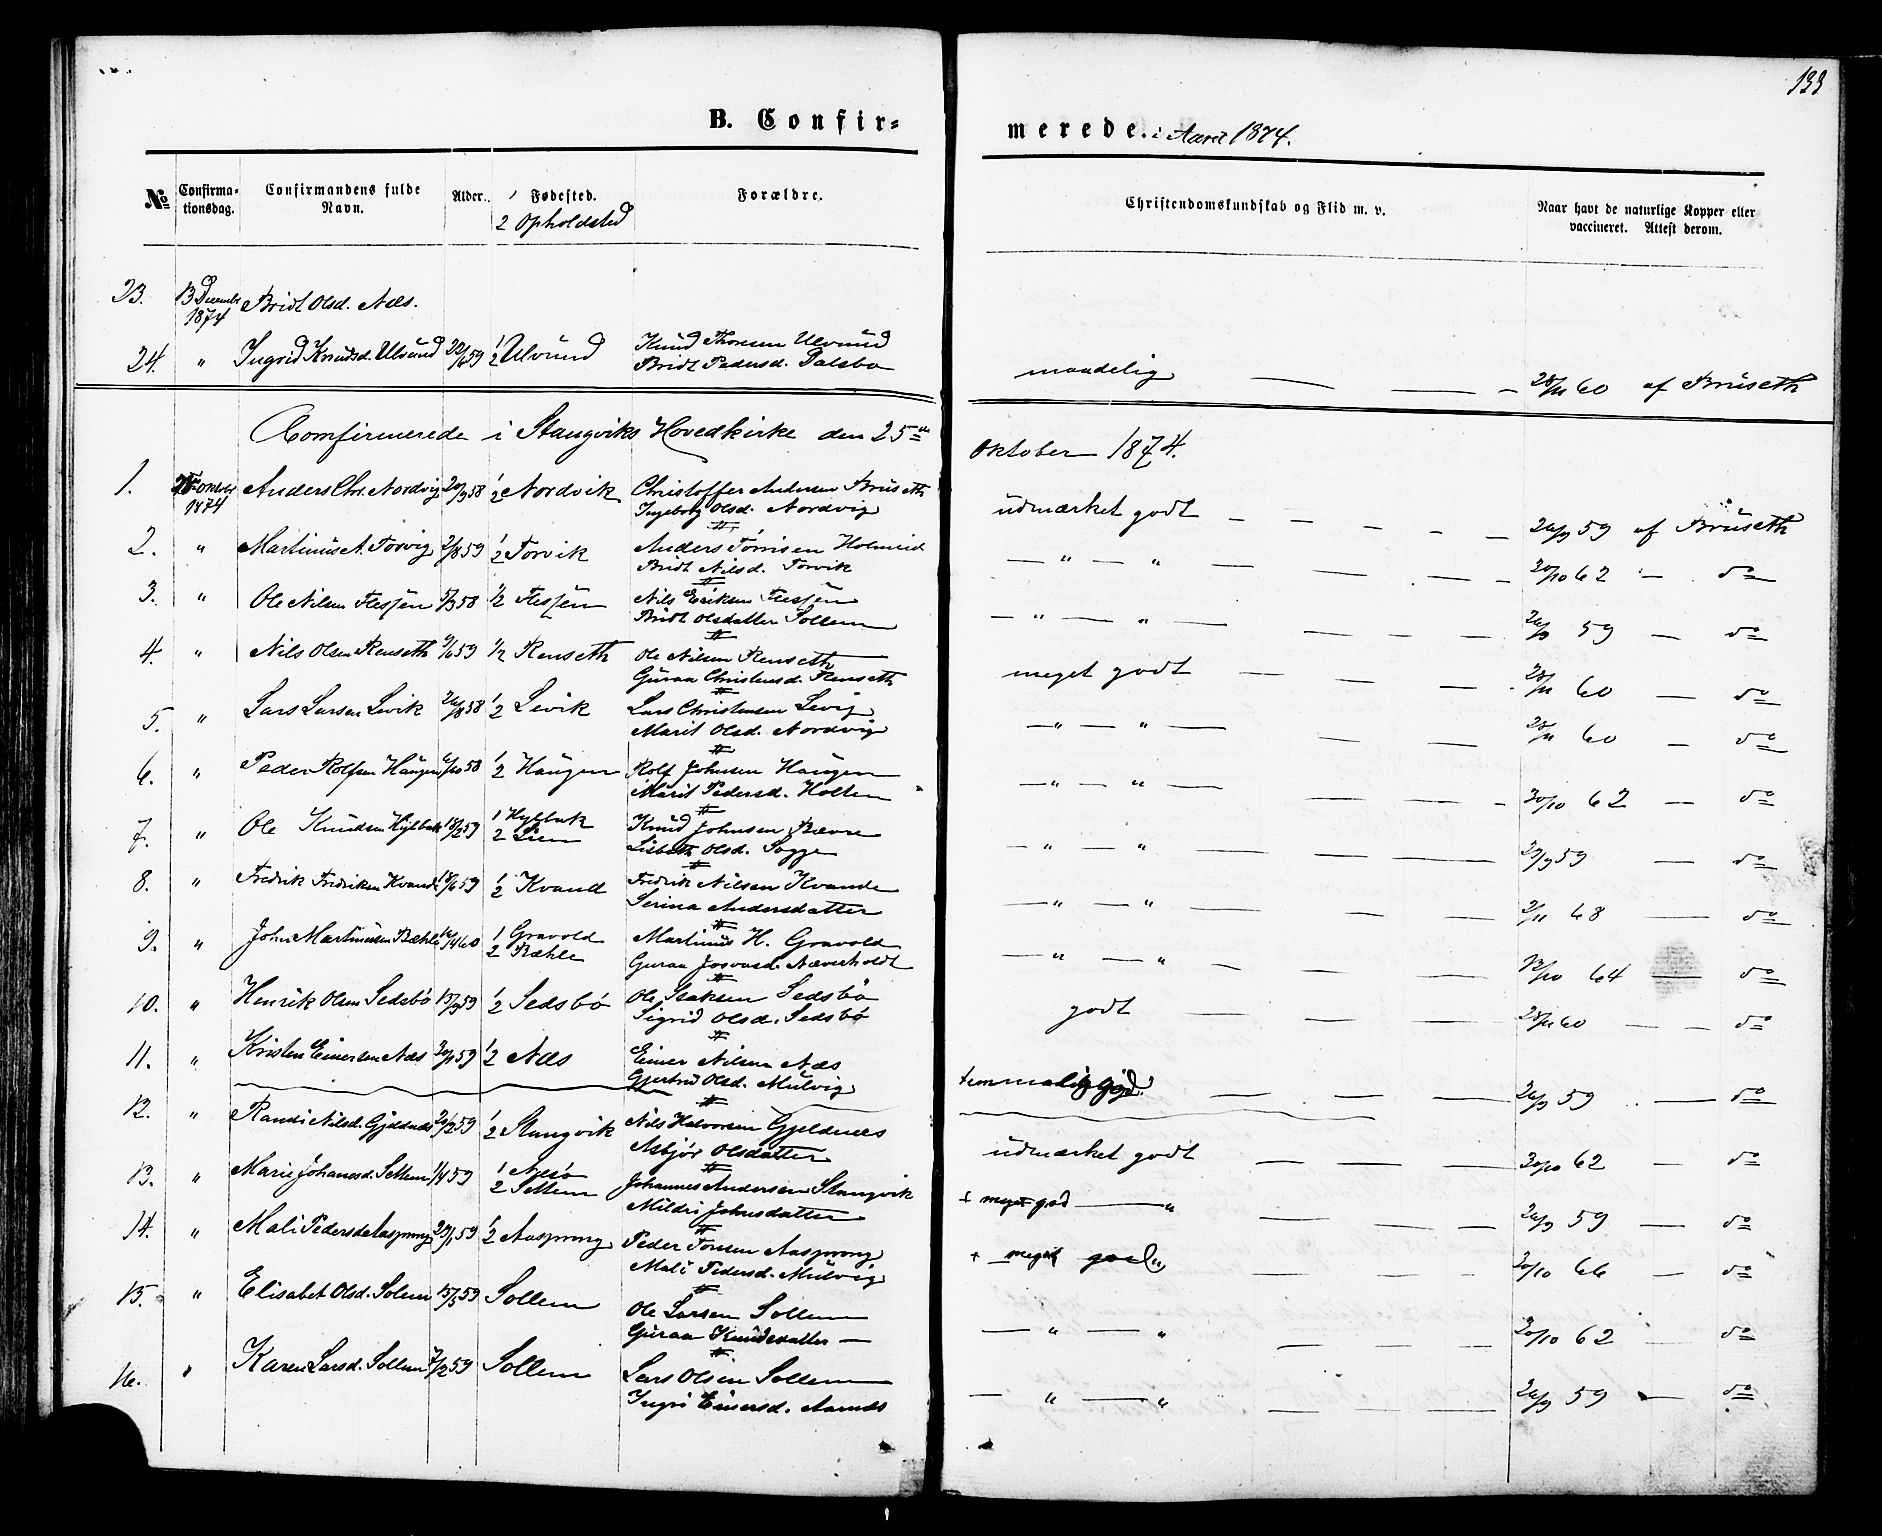 133
B. Confir- merede. i Aaret 1874.
No Confirmationsdag. Confirmandens fulde Navn. Alder. 1 Fødested. 2 Opholdsted Forældre. Christendomskundskab og Flid m. v. Naar havt de naturlige Kopper eller vaccineret. Attest derom.
23. 13 Decembr 1874 Bridt Olsd. Næs.
24. " Ingrid Knudsd. Ulvund 22/6 59 1/2 Ulvund Knud Thoresen Ulvund
Bridt Pedersd. Dalsbø maadelig — — - 28/11 60 af Brüseth
Comfirmerede i Stangviks Hovedkirke den 25de Oktober 1874.
1. Oktober 1874 Anders Chr. Nordvig 20/9 58 1/2 Nordvik Christoffer Andersen Brüseth
Ingeborg Olsd. Nordvig udmærket godt — — — — — 24/9 59 af Brüseth
2. " Martinus A. Torvig 2/8 59 1/2 Torvik Anders Tørrisen
Bridt Nilsd. Torvik — " — " — — — — — 30/10 62 — do
3. " Ole Nilsen Flessen 5/3 58 1/2 Flessen Nils Eriksen Flessen
Bridt Olsdatter Sollem — " — " — — — — 24/9 59 — do
4. " Nils Olsen Renseth 9/6 59 1/2 Renseth Ole Nilsen Renseth
Guraa Christensd. Renseth meget godt — — — — 28/11 60 — do
5. " Lars Larsen Levik 24/8 58 1/2 Levik Lars Christensen Levig
Marit Olsd. Nordvig — " — " — — — 28/11 60 — do
6. " Peder Rolfsen Haugen 6/10 58 1/2 Haugen Rolf Johnsen Haugen
Marit Pedersd. Holten — " — " — — — - 30/10 62 — do
7. " Ole Knudsen Hylbak 18/2 59 1 Hylbak
2 Lien Knud Johnsen Bævre
Lisbeth Olsd. Sogge — " — " — — — — 29/9 59 — do
8. " Fredrik Fredriksen Kvande 18/6 59 1/2 Kvand Fredrik Nilsen Kvande
Serina Andersdatter — " — " — — — 2/11 68 — do
9. " John Martinusen Bæhle 14/4 60 1 Gravold
2 Bæhle Martinus H. Gravold
Guraa Josvasd. Næverholdt — " — " — — — 12/10 64 — do
10. " Henrik Olsen Sedsbø 13/9 59 1/2 Sedsbø Ole Isaksen Sedsbø
Sigrid Olsd. Sedsbø godt — — — — 28/11 60 — — do
11. " Kristen Einersen Næs 20/9 59 1/2 Næs Einer Nilsen Næs
Gjertrud Olsd. Mulvig temmelig god. — — — 24/9 59 — do
12. " Randi Nilsd. Gjeldnæs 20/2 59 1/2 Stangvik Nils Halvorsen Gjeldnæs
Asbjør Olsdatter udmærket godt — — — 30/10 62 — do
13. " Marie Johannesd. Settem 1/4 59 2 Settem Johannes Andersen Stangvik
Mildri Johnsdatter + meget god — " — — — 24/9 59 — do
14. " Mali Pedersd. Aasprong 29/1 59 1/2 Aasprong Peder Tøresen Aasprong
Mali Pedersd. Mulvig + meget god " — — — 20/10 66 — do
15. " Elisabet Olsd. Solem 15/5 59 Sollem Ole Larsen Sollem
Guraa Knudsdatter — — " — " — — — 30/10 62 do
16. " Karen Larsd. Sollem 7/2 59 Sollem Lars Olsen Sollem
Ingri Einersd. Aarnes — " — " — — — 24/9 59 — do